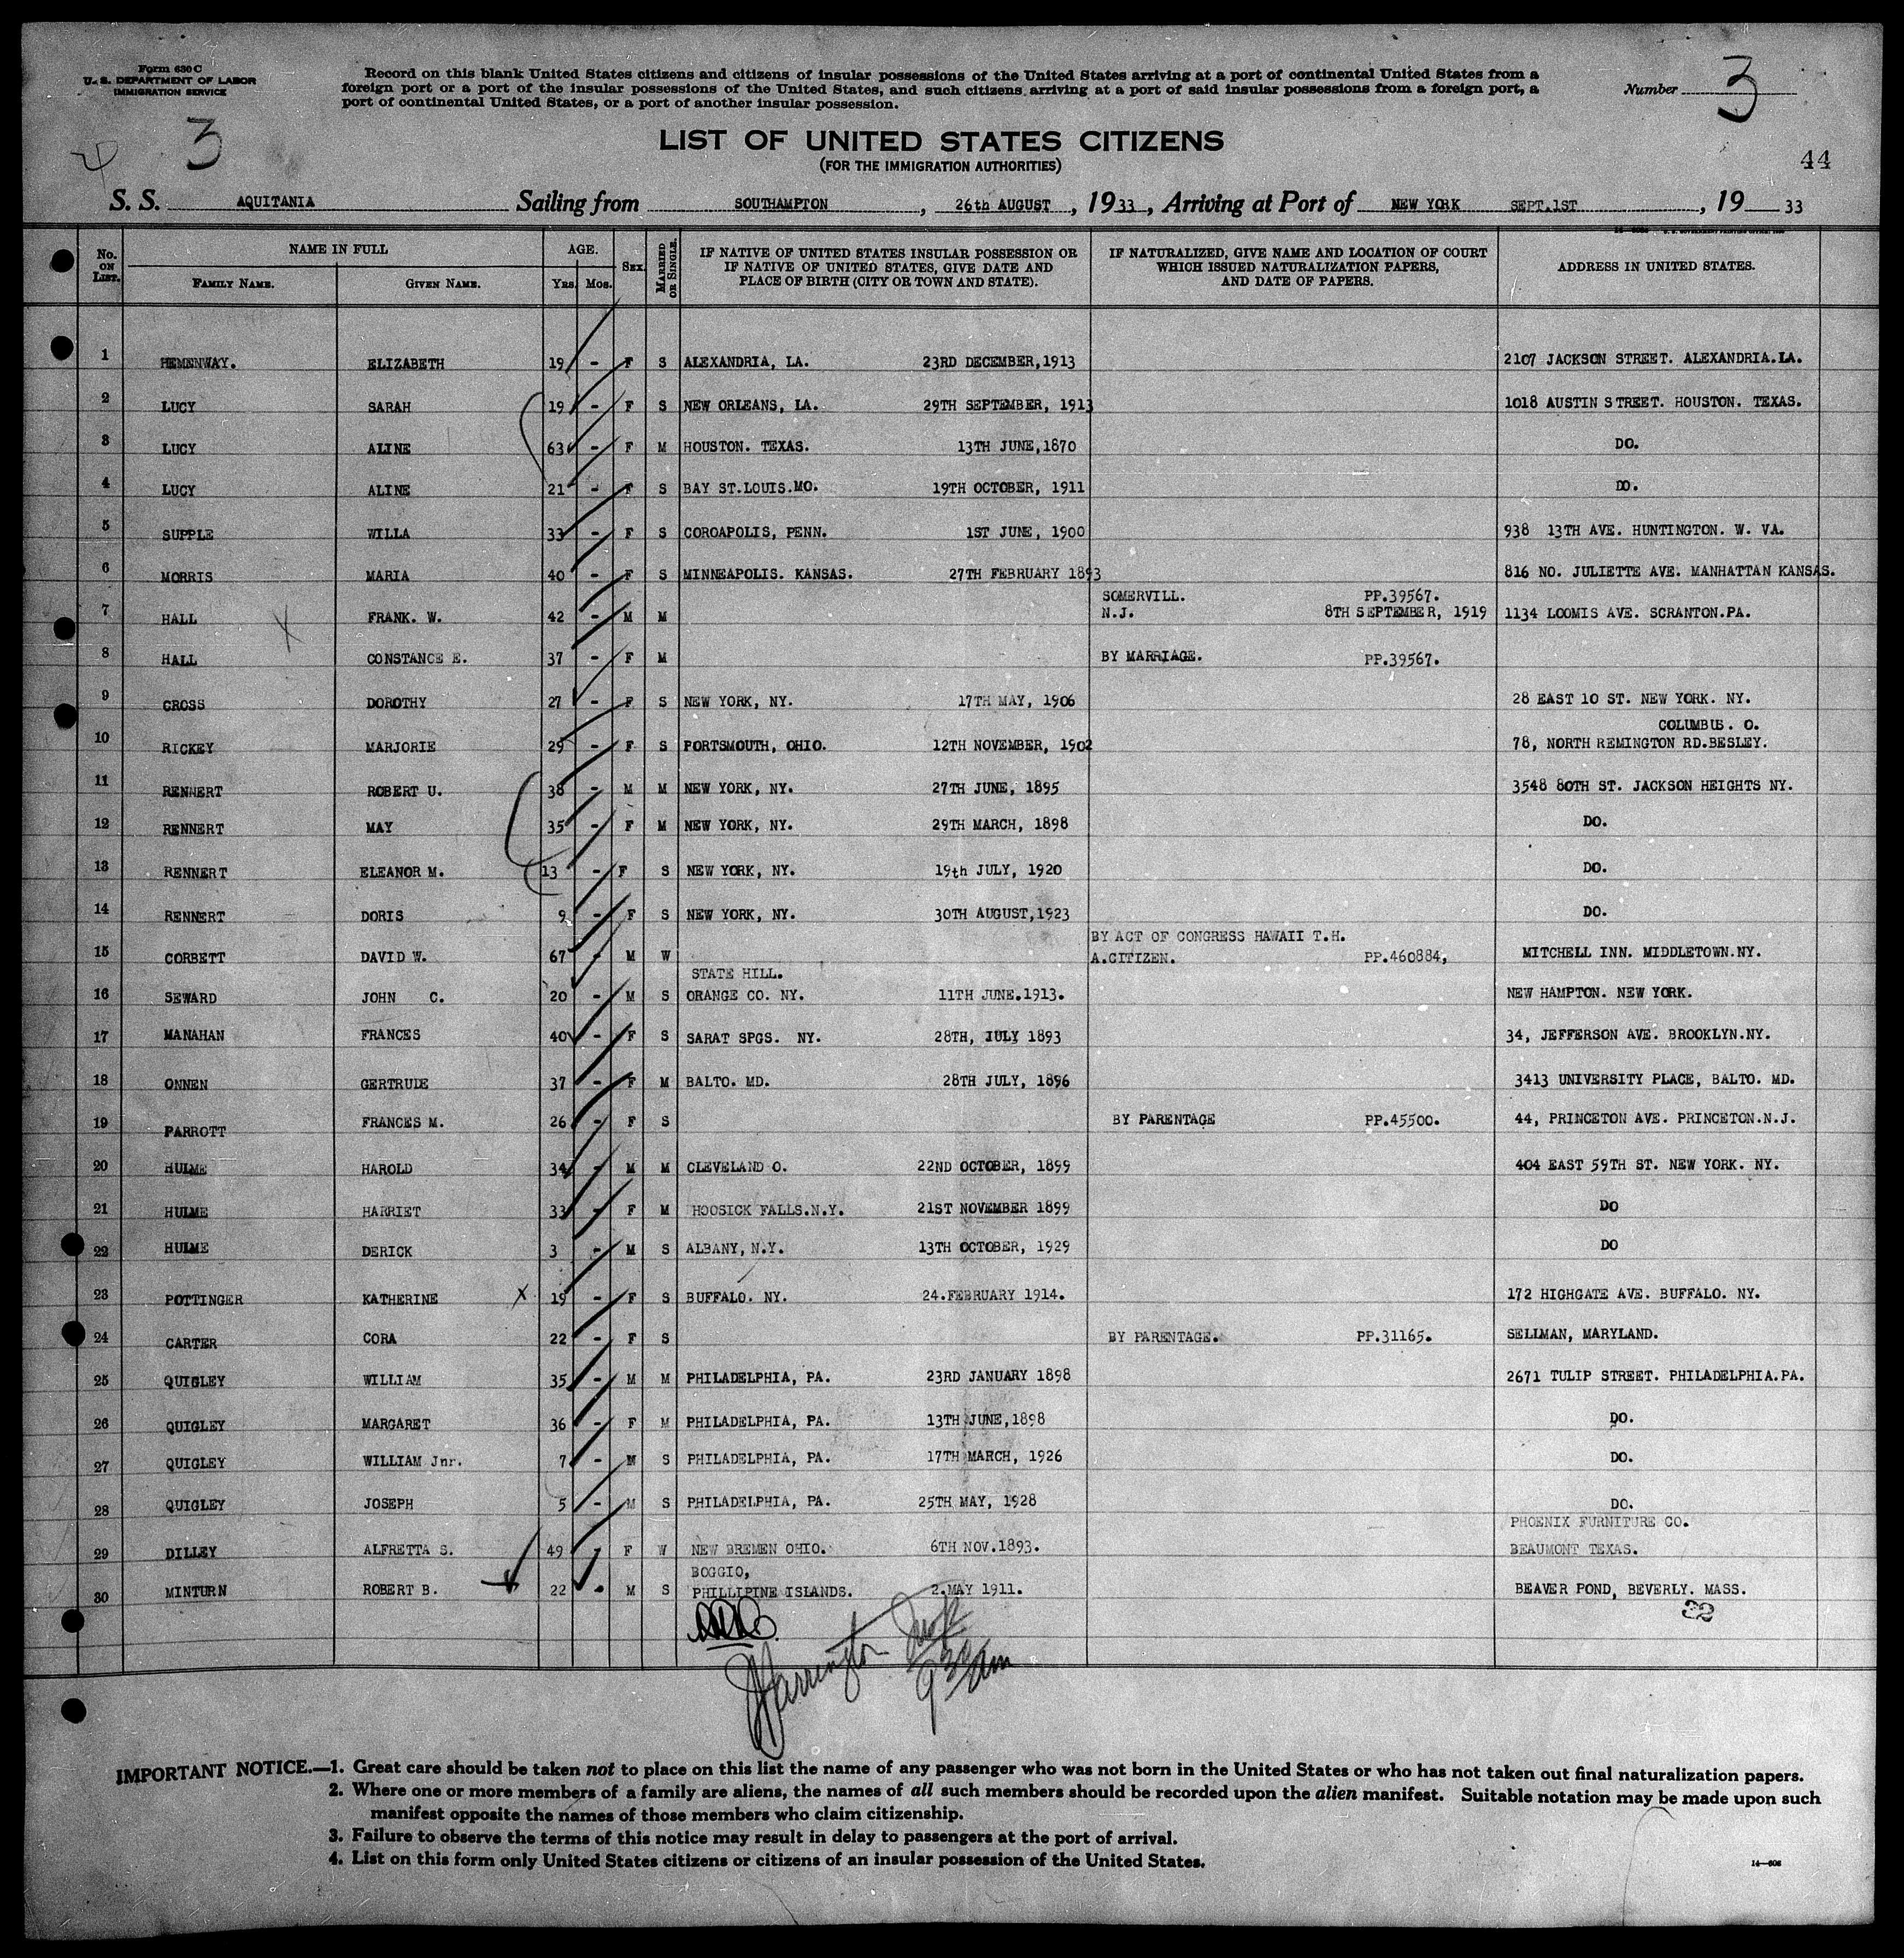 Form 630 C
U. S. DEPARTMENT OF LABOR
IMMIGRATION SERVICE
Record on this blank United States citizens and citizens of insular possessions of the United States arriving at a port of continental United States from a
foreign port or a port of the insular possessions of the United States, and such citizens arriving at a port of said insular possessions from a foreign port, a
port of continental United States, or a port of another insular possession.
Number 3
3
LIST OF UNITED STATES CITIZENS
(FOR THE IMMIGRATION AUTHORITIES)
44
S. S. AQUITANIA Sailing from SOUTHAMPTON, 26th AUGUST, 1933, Arriving at Port of NEW YORK SEPT.1ST, 19 33
No. ON LIST. NAME IN FULL FAMILY NAME. GIVEN NAME. AGE. YRS. MOS. SEX. MARRIED OR SINGLE. IF NATIVE OF UNITED STATES INSULAR POSSESSION OR IF NATIVE OF UNITED STATES, GIVE DATE AND PLACE OF BIRTH (CITY OR TOWN AND STATE). IF NATURALIZED, GIVE NAME AND LOCATION OF COURT WHICH ISSUED NATURALIZATION PAPERS, AND DATE OF PAPERS. ADDRESS IN UNITED STATES.
1 HEMENWAY. ELIZABETH 19 - F S ALEXANDRIA, LA. 23RD DECEMBER,1913 2107 JACKSON STREET. ALEXANDRIA.LA.
2 LUCY SARAH 19 - F S NEW ORLEANS, LA. 29TH SEPTEMBER, 1913 1018 AUSTIN STREET. HOUSTON. TEXAS.
3 LUCY ALINE 63 - F M HOUSTON. TEXAS. 13TH JUNE,1870 DO.
4 LUCY ALINE 21 - F S BAY ST.LOUIS.MO. 19TH OCTOBER, 1911 DO.
5 SUPPLE WILLA 33 - F S COROAPOLIS, PENN. 1ST JUNE, 1900 938 13TH AVE. HUNTINGTON. W. VA.
6 MORRIS MARIA 40 - F S MINNEAPOLIS. KANSAS. 27TH FEBRUARY 1893 816 NO. JULIETTE AVE. MANHATTAN KANSAS.
SOMERVILL. PP.39567.
7 HALL FRANK. W. 42 - M M N.J. 8TH SEPTEMBER, 1919 1134 LOOMIS AVE. SCRANTON.PA.
8 HALL CONSTANCE E. 37 - F M BY MARRIAGE. PP.39567.
9 CROSS DOROTHY 27 - F S NEW YORK, NY. 17TH MAY, 1906 28 EAST 10 ST. NEW YORK. NY.
COLUMBUS. O.
10 RICKEY MARJORIE 29 - F S PORTSMOUTH, OHIO. 12TH NOVEMBER, 1902 78, NORTH REMINGTON RD.BESLEY.
11 RENNERT ROBERT U. 38 - M M NEW YORK, NY. 27TH JUNE, 1895 3548 80TH ST. JACKSON HEIGHTS NY.
12 RENNERT MAY 35 - F M NEW YORK, NY. 29TH MARCH, 1898 DO.
13 RENNERT ELEANOR M. 13 - F S NEW YORK, NY. 19th JULY, 1920 DO.
14 RENNERT DORIS 9 - F S NEW YORK, NY. 30TH AUGUST,1923 DO.
BY ACT OF CONGRESS HAWAII T.H.
15 CORBETT DAVID W. 67 - M W A.CITIZEN. PP.460884, MITCHELL INN. MIDDLETOWN.NY.
STATE HILL.
16 SEWARD JOHN C. 20 - M S ORANGE CO. NY. 11TH JUNE.1913. NEW HAMPTON. NEW YORK.
17 MANAHAN FRANCES 40 - F S SARAT SPGS. NY. 28TH, JULY 1893 34, JEFFERSON AVE. BROOKLYN.NY.
18 ONNEN GERTRUDE 37 - F M BALTO. MD. 28TH JULY, 1896 3413 UNIVERSITY PLACE, BALTO. MD.
19 PARROTT FRANCES M. 26 - F S BY PARENTAGE PP.45500. 44, PRINCETON AVE. PRINCETON.N.J.
20 HULME HAROLD 34 - M M CLEVELAND O. 22ND OCTOBER, 1899 404 EAST 59TH ST. NEW YORK. NY.
21 HULME HARRIET 33 - F M HOOSICK FALLS.N.Y. 21ST NOVEMBER 1899 DO
22 HULME DERICK 3 - M S ALBANY, N.Y. 13TH OCTOBER, 1929 DO
23 POTTINGER KATHERINE X 19 - F S BUFFALO. NY. 24.FEBRUARY 1914. 172 HIGHGATE AVE. BUFFALO. NY.
24 CARTER CORA 22 - F S BY PARENTAGE. PP.31165. SELLMAN, MARYLAND.
25 QUIGLEY WILLIAM 35 - M M PHILADELPHIA, PA. 23RD JANUARY 1898 2671 TULIP STREET. PHILADELPHIA.PA.
26 QUIGLEY MARGARET 36 - F M PHILADELPHIA, PA. 13TH JUNE,1898 DO.
27 QUIGLEY WILLIAM Jnr. 7 - M S PHILADELPHIA, PA. 17TH MARCH, 1926 DO.
28 QUIGLEY JOSEPH 5 - M S PHILADELPHIA, PA. 25TH MAY, 1928 DO.
PHOENIX FURNITURE CO.
29 DILLEY ALFRETTA S. 49 - F W NEW BREMEN OHIO. 6TH NOV.1893. BEAUMONT TEXAS.
BOGGIO,
30 MINTURN ROBERT B. 22 - M S PHILLIPINE ISLANDS. 2.MAY 1911. BEAVER POND, BEVERLY. MASS.
Harrington
930 am
IMPORTANT NOTICE.—1. Great care should be taken not to place on this list the name of any passenger who was not born in the United States or who has not taken out final naturalization papers.
2. Where one or more members of a family are aliens, the names of all such members should be recorded upon the alien manifest. Suitable notation may be made upon such
manifest opposite the names of those members who claim citizenship.
3. Failure to observe the terms of this notice may result in delay to passengers at the port of arrival.
4. List on this form only United States citizens or citizens of an insular possession of the United States.